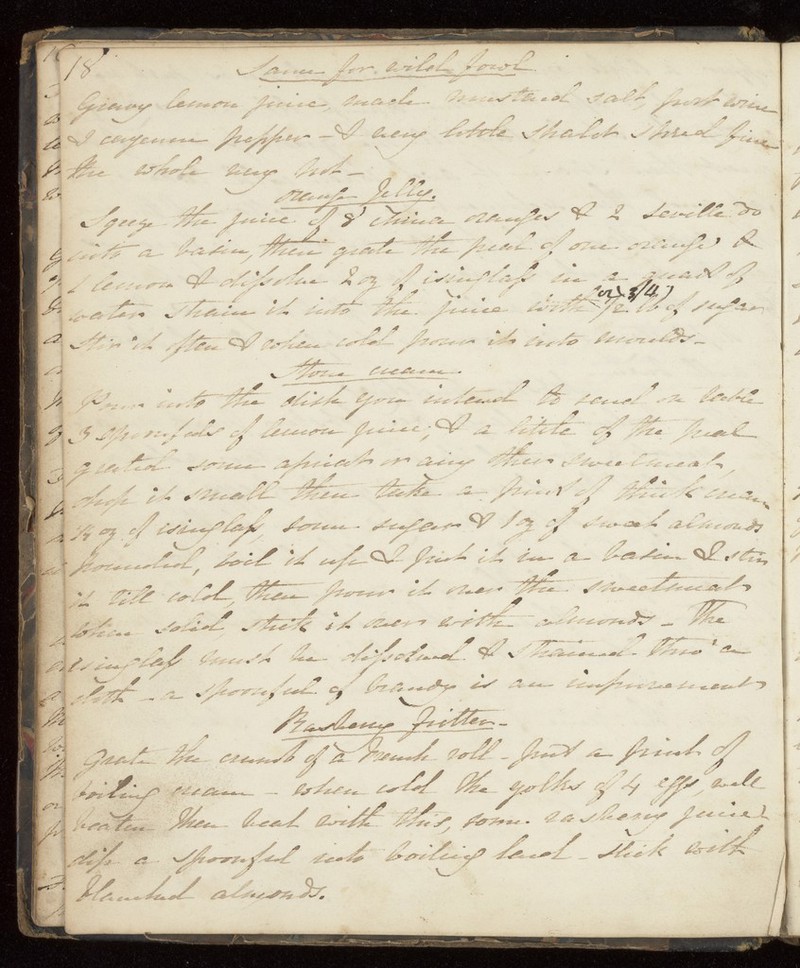 18
Sauce for wild fowl
Gravy lemon juice, made mustard salt, port wine
& cayenne pepper - & very little Shalot shred fine
the whole very hot -
Orange Jelly.
Squeeze the juice of 8 china oranges & 2 seville do
into a basin, then grate the peel of one orange &
1 lemon & dissolve 2 oz of isinglass in a quart of
water strain it into the juice with 1/2 (or 3/4) lb of sugar
stir it often & when cold pour it into moulds -
Stone cream
Pour into the dish you intend to send on table
3 spoonfuls of lemon juice, & a little of the peal
grated some apricot or any other sweetmeat,
chop it small then take a pint of thick cream
1/4 oz of isinglass, some sugar & 1 oz of sweet almonds
pounded, boil it up & put it in a basin & stir
it till cold, then pour it over the sweetmeat
when solid stick it over with almonds - The
isinglass must be dissolved & strained thro' a
cloth - a spoonful of brandy is an improvement
Rasberry fritters -
Grate the crumb of a French roll - put a pint of
boiling cream - when cold the yolks of 4 eggs well
beaten then beat with this, some rasberry juice
dip a spoonful into boiling lard - stick with
blanched almonds.